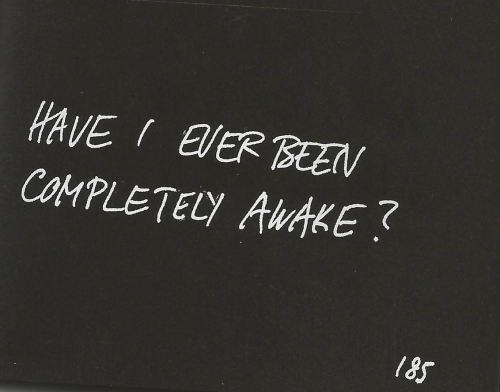 HAVE I EVER BEEN
COMPLETELY AWAKE?
185